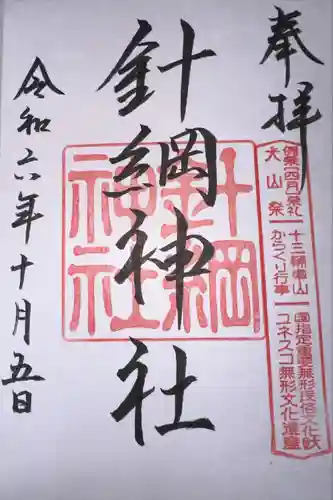 奉拝
例祭(四月)祭礼
犬山祭
十三輌車山
からくり行事
国指定重要無形民俗文化財
ユネスコ無形文化遺産
針綱神社
針綱神社
令和六年十月五日